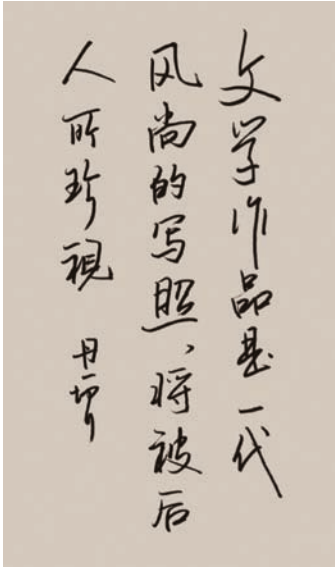 文学作品是一代
风尚的写照、将被后
人所珍視